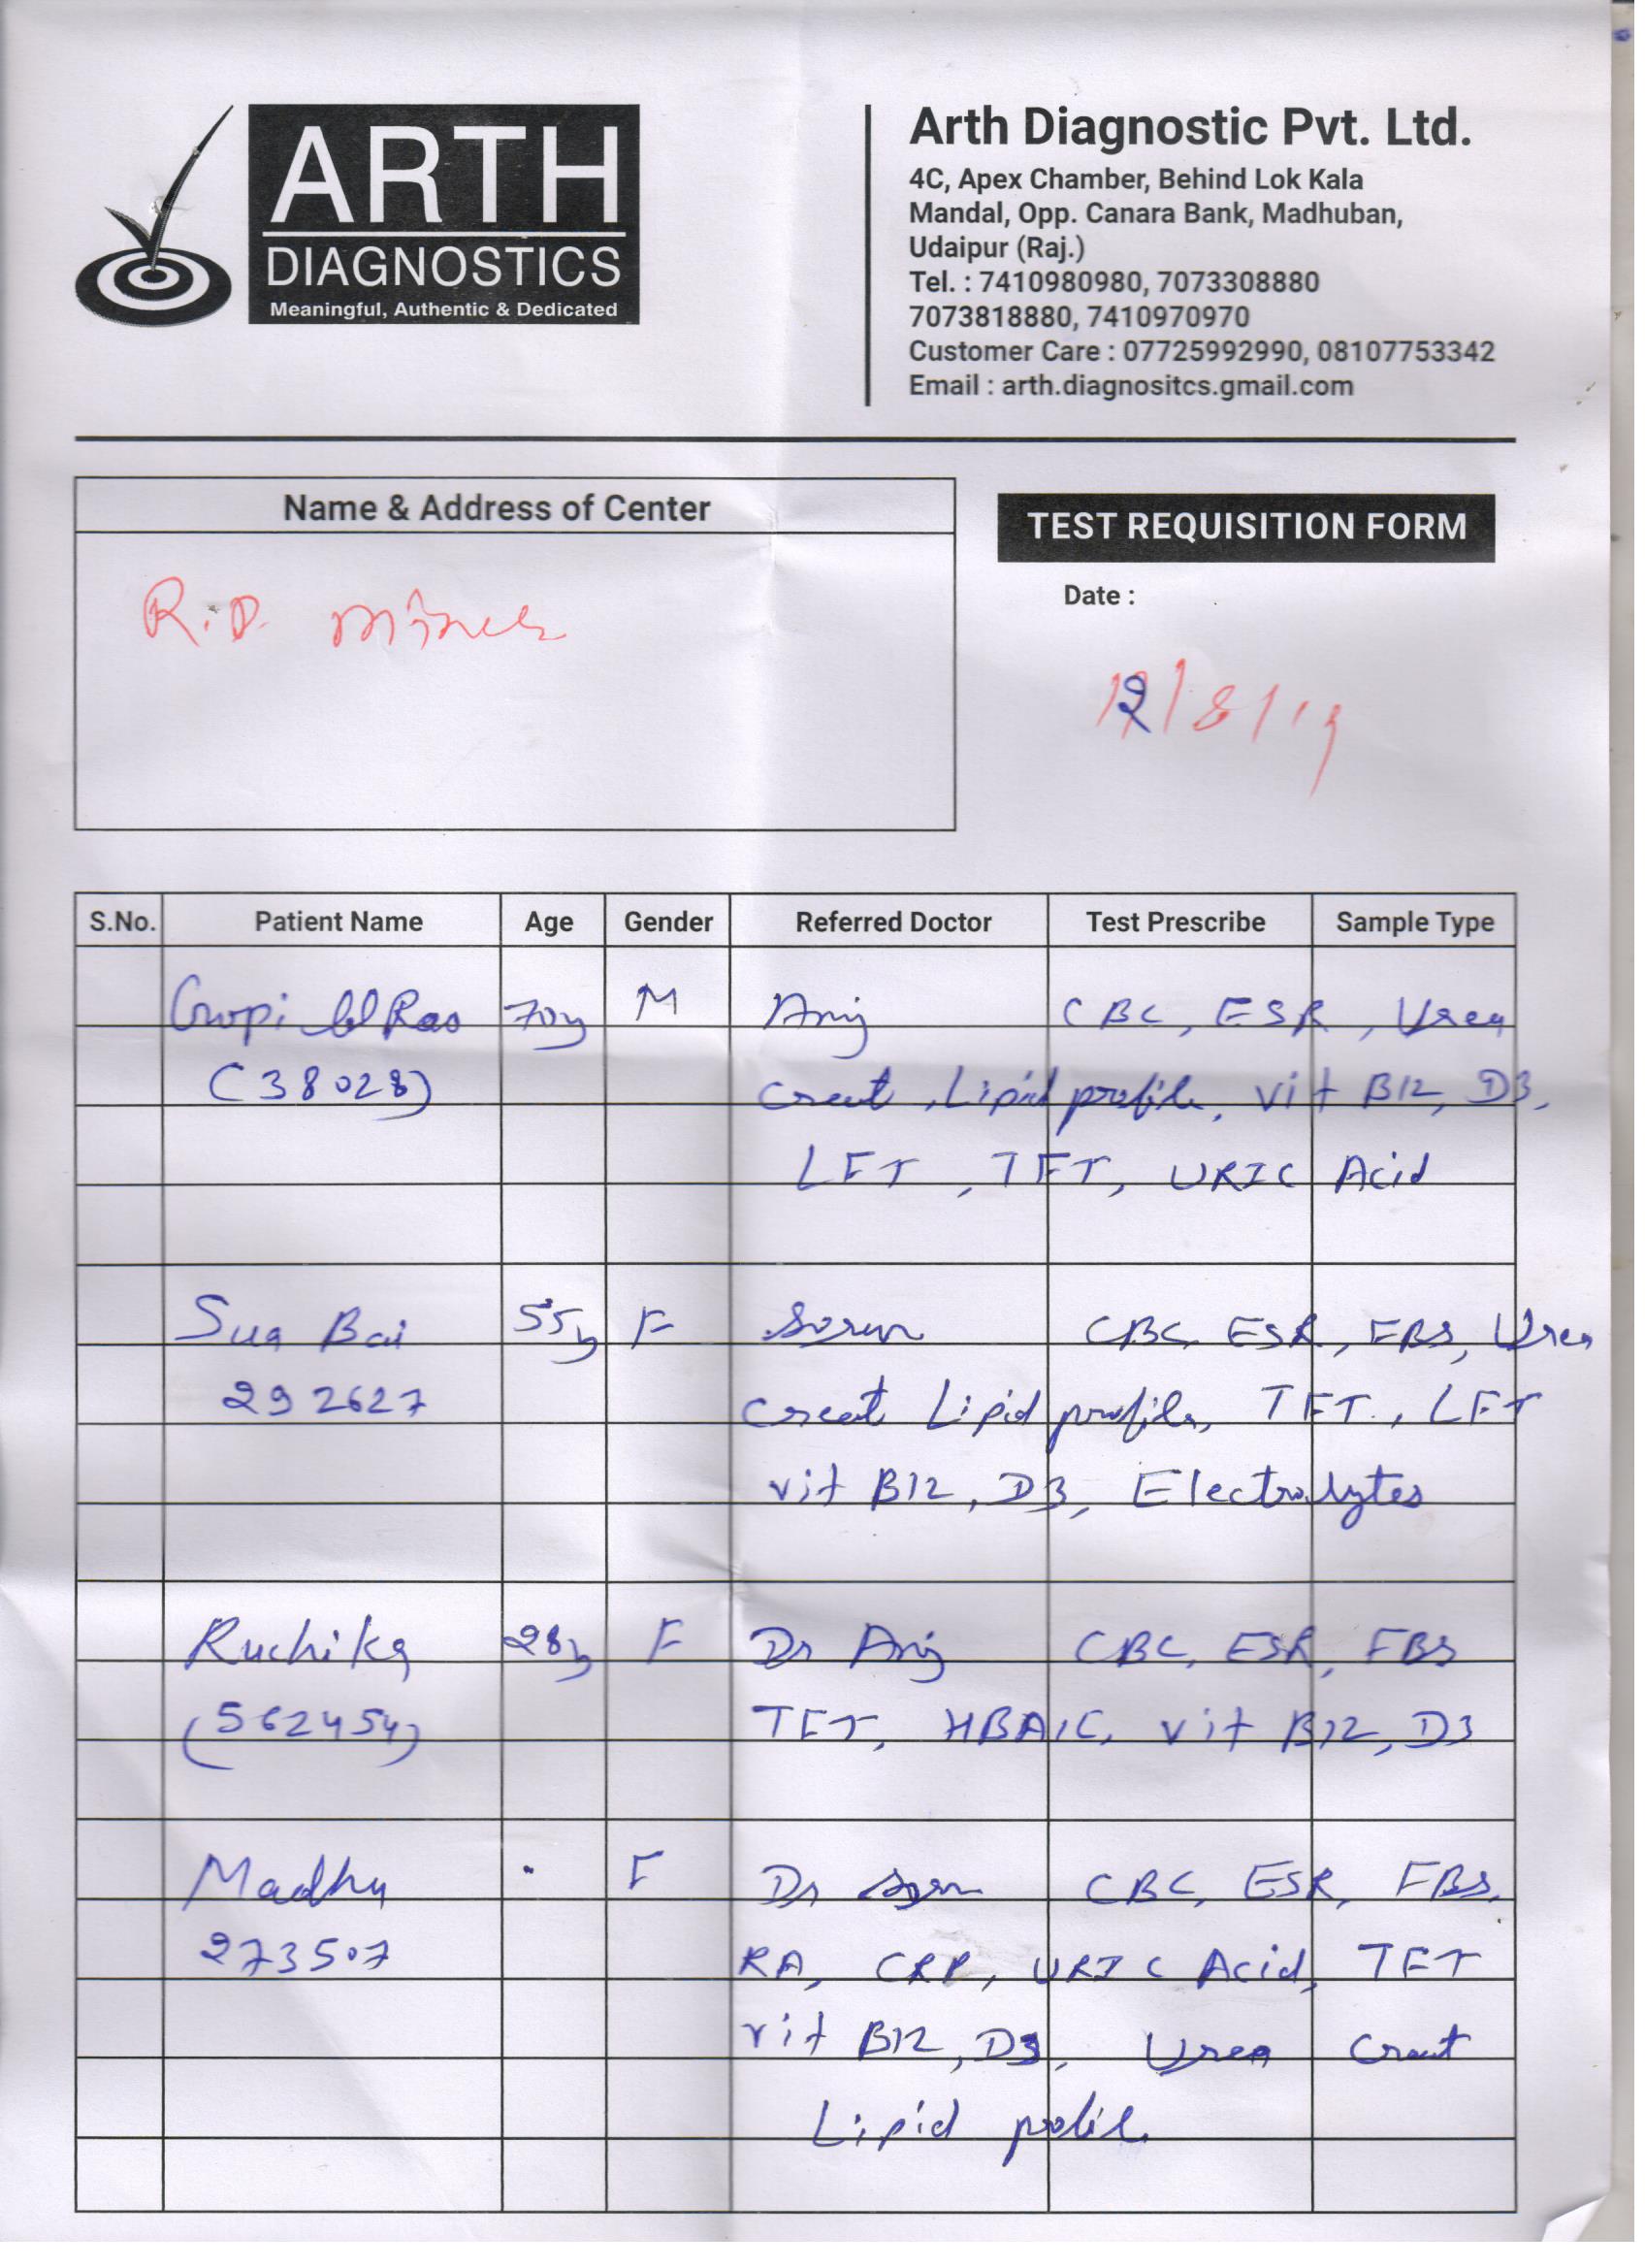 ARTH
DIAGNOSTICS
Meaningful, Authentic & Dedicated
Arth Diagnostic Pvt. Ltd.
4C, Apex Chamber, Behind Lok Kala
Mandal, Opp. Canara Bank, Madhuban,
Udaipur (Raj.)
Tel. : 7410980980, 7073308880
7073818880, 7410970970
Customer Care : 07725992990, 08107753342
Email : arth.diagnositcs.gmail.com
Name & Address of Center
R.D.
TEST REQUISITION FORM
Date :
12/8/19
S.No. Patient Name Age Gender Referred Doctor Test Prescribe Sample Type
Gopi Rao 70y M CBC, ESR, Urea
(38028) Creat, Lipid profile, vit B12, D3,
LFT, TFT, URIC Acid
Sua Bai 55y F CBC ESR, FBS, Urea
292627 Creat Lipid profile, TFT., LFT
vit B12, D3, Electrolytes
Ruchika 28y F Dr CBC, ESR, FBS
(562454) TFT, HBA1C, vit B12, D3
Madhu F Dr CBC, ESR, FBS,
273507 RA, CRP, URIC Acid, TFT
vit B12, D3, Urea Creat
Lipid profile